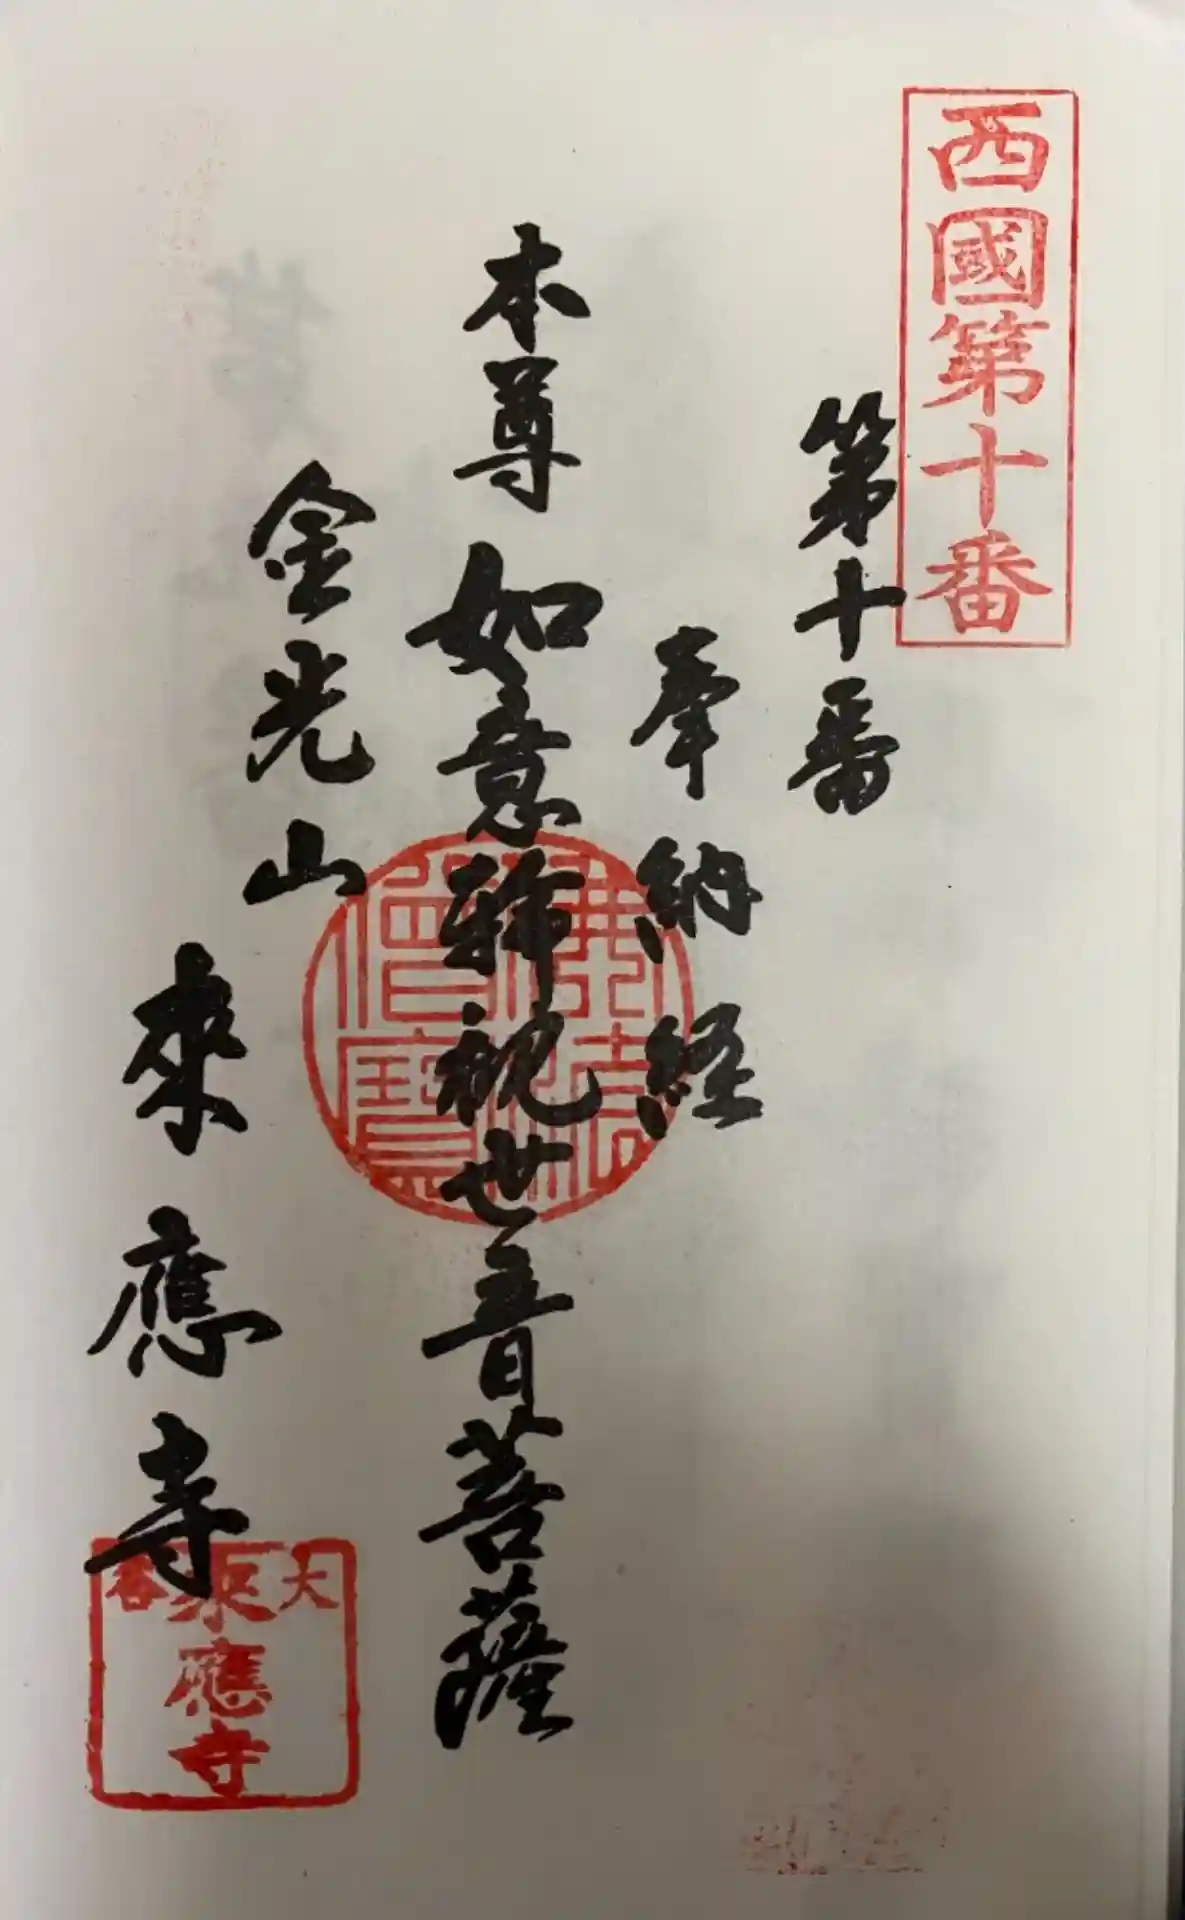 西國第十番
第十番
奉納経
本尊 如意輪観世音菩薩
金光山
來應寺
佛法僧寶
大谷
來應寺